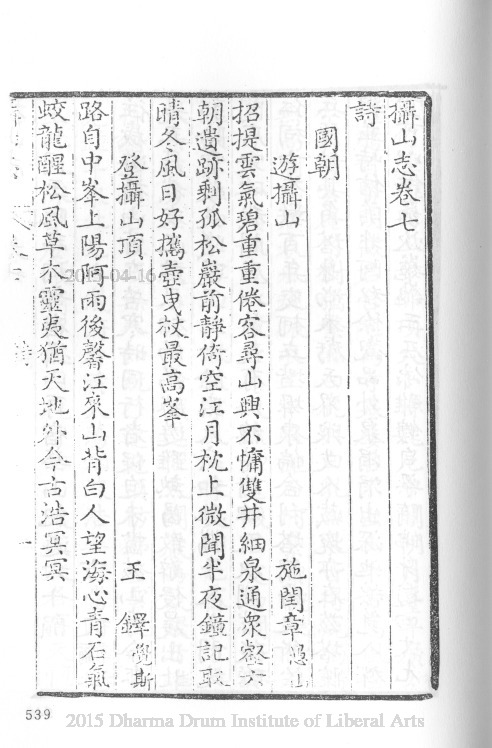 攝山志卷七
詩
國朝
遊攝山 施閏章愚山
招提雲氣碧重重倦客尋山興不慵雙井細泉通衆壑六
朝遺跡剩孤松巖前靜倚空江月枕上微聞半夜鐘記取
晴冬風日好攜壺曳杖最高峯
登攝山頂 王鐸覺斯
路自中峯上陽阿雨後馨江來山背白人望海心青石氣
蛟龍醒松風草木靈夷猶天地外今古浩冥冥
2015-04-16
539
2015 Dharma Drum Institute of Liberal Arts